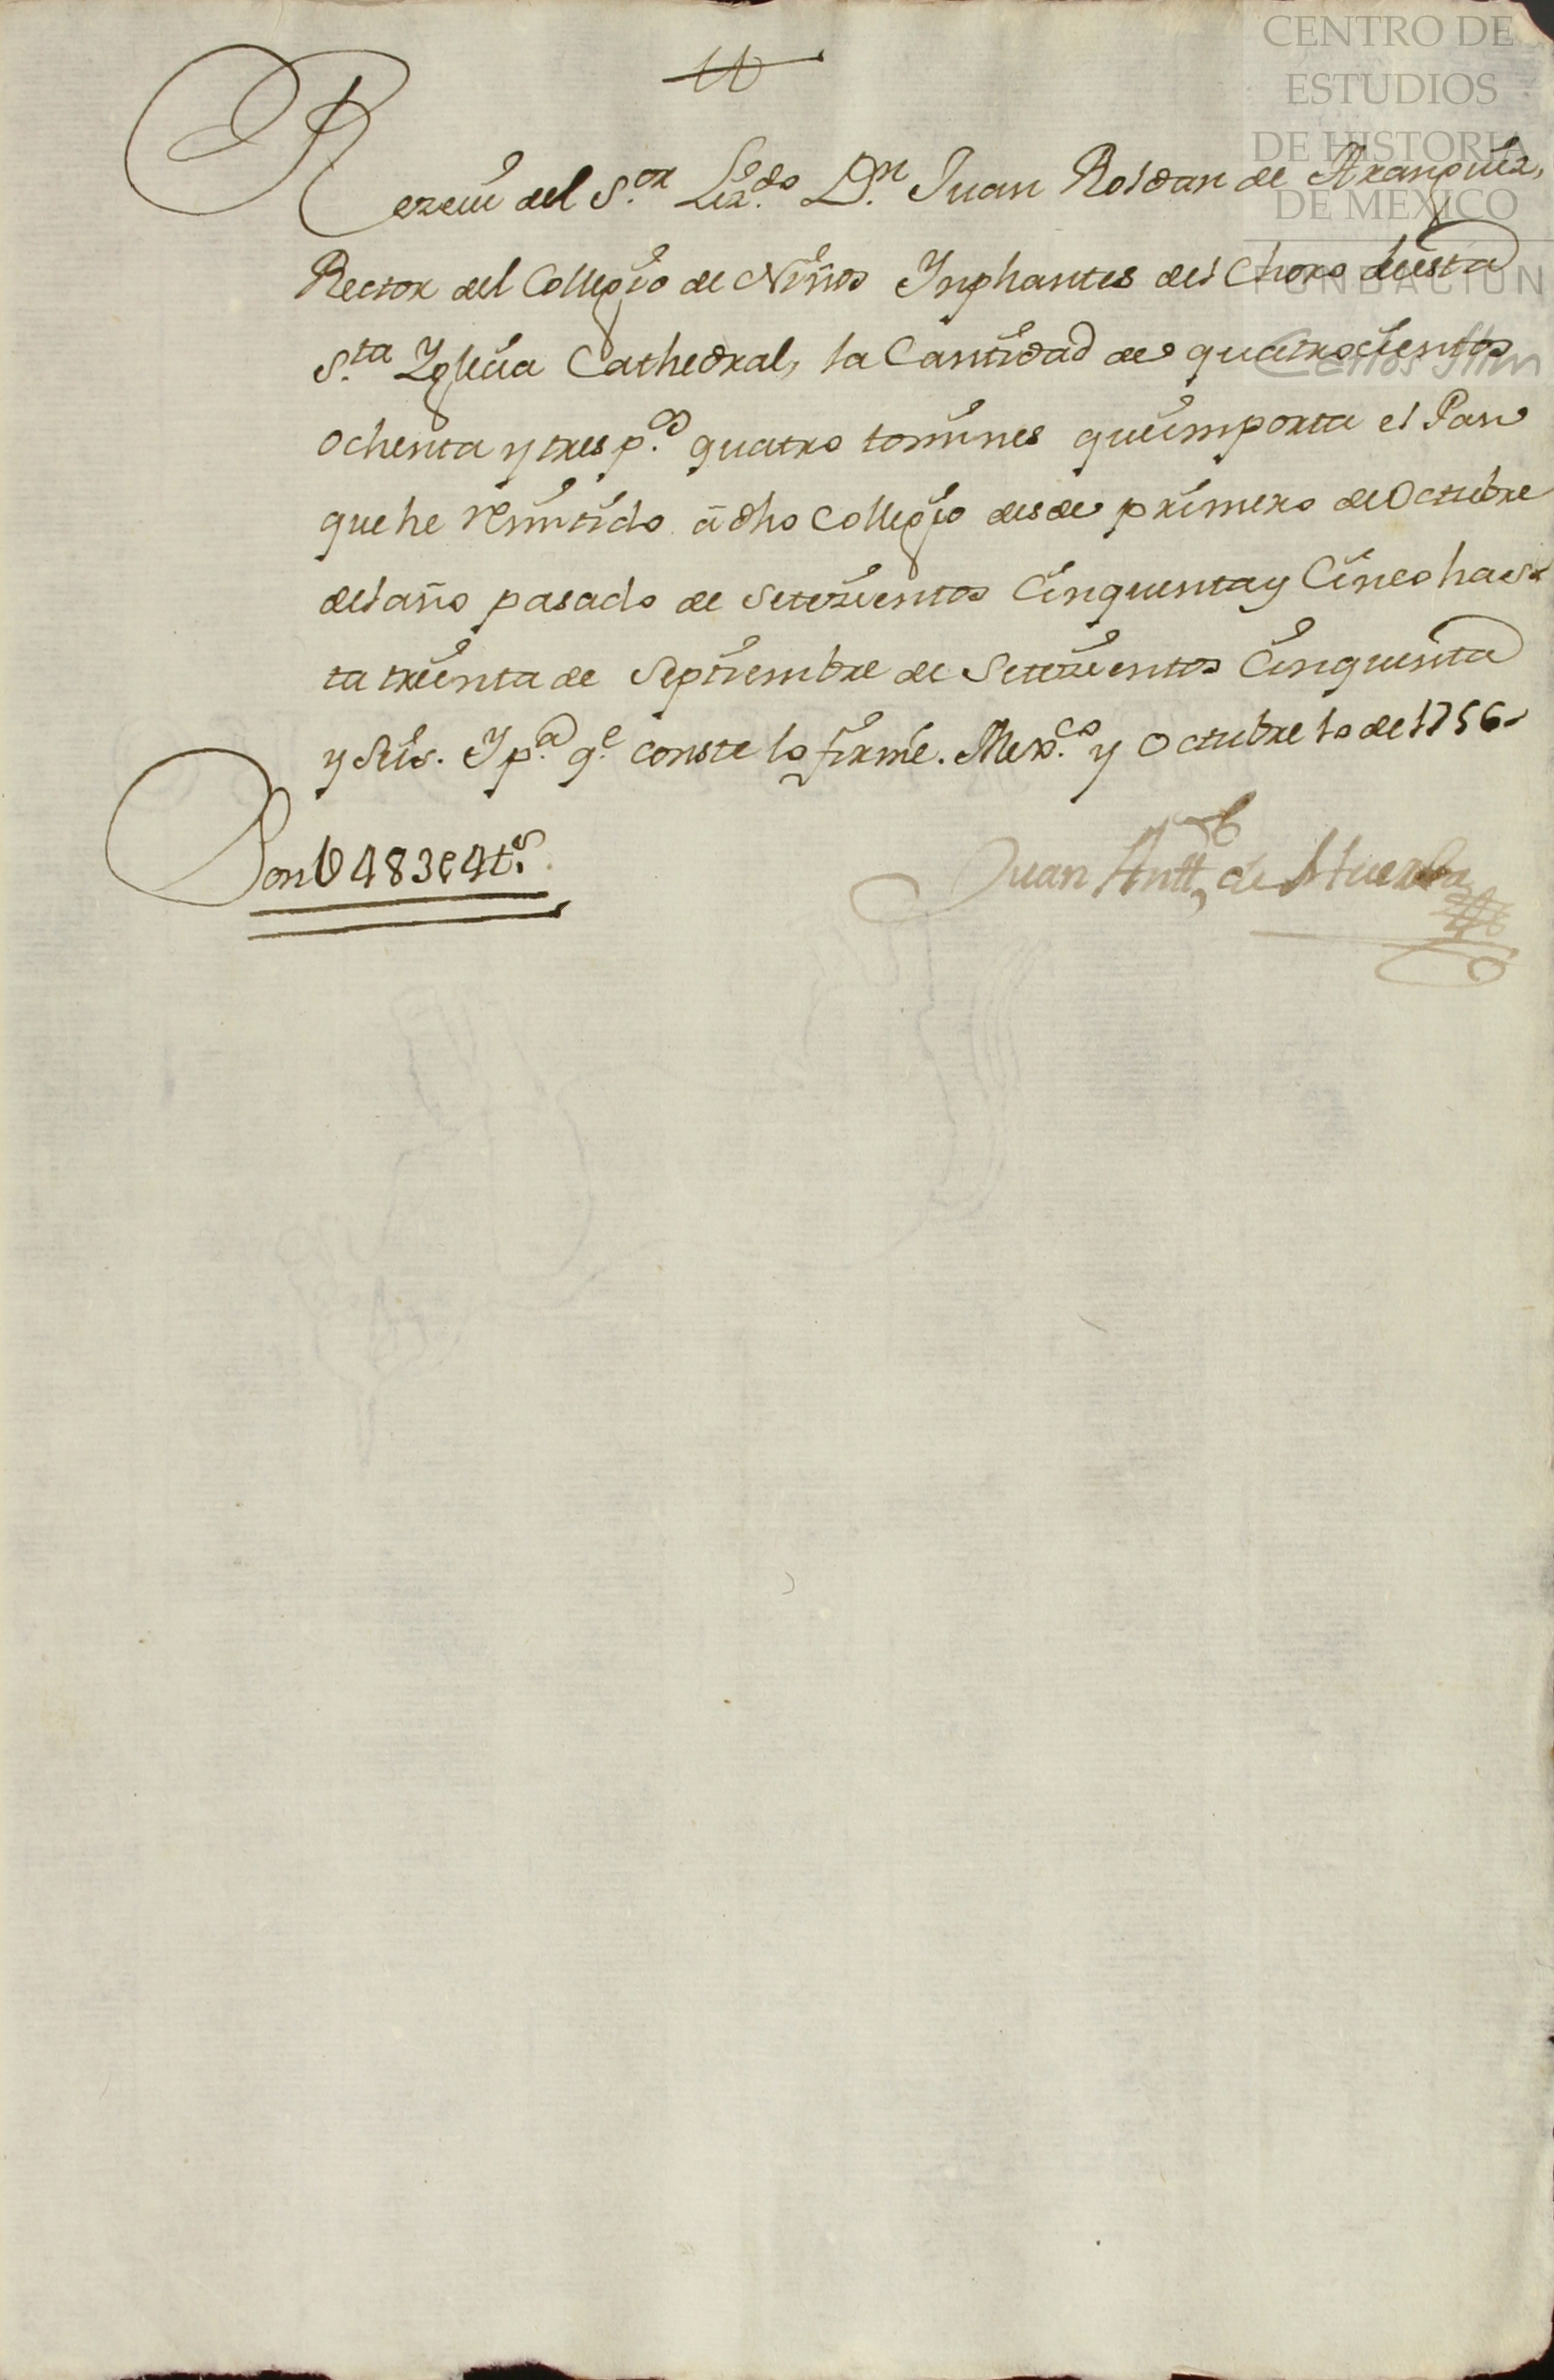 CENTRO DE
ESTUDIOS
DE HISTORIA
DE MEXICO
FUNDACIÓN
Carlos Slim
Rezeui del S.or Liz.do D.n Juan Roldan de Aranguiz,
Rector del Collegio de Niños Inphantes del Choro deesta
S.ta Yglecia Cathedral, la Cantidad de quatrocientos
ochenta y tres p.s quatro tomines queimporta el Pan
que he remitido â dho Collegio desde primero de Octubre
del año pasado de setezientos Cinquenta y Cinco has-
ta treinta de Septiembre de Setezientos Cinquenta
y Seis. Y p.a q.e conste lo firmé. Mex.co y Octubre 1o de 1756.
Son U 483 p 4 t.s
Juan Antt.o de